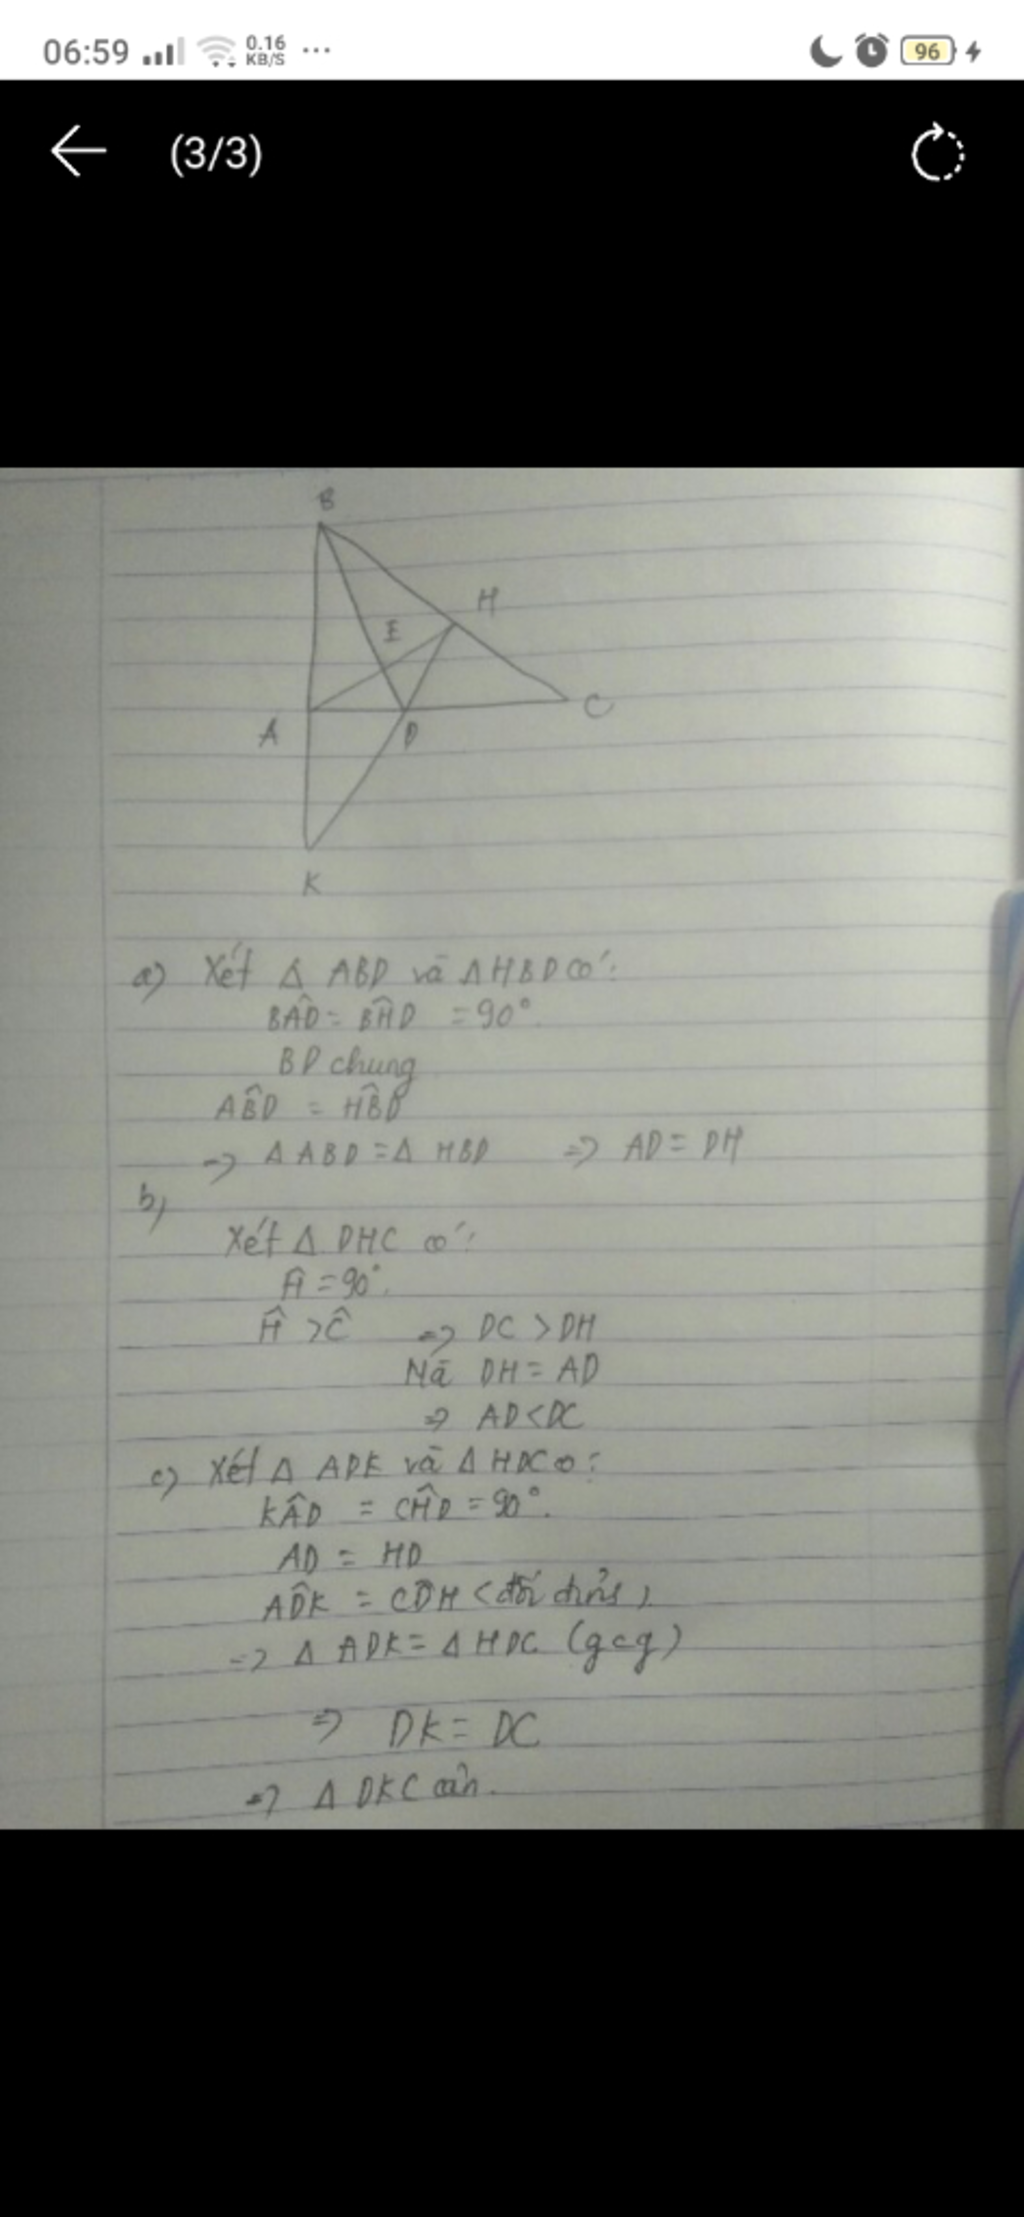 06:59 0.16 KB/S ... 96
(3/3)
B
H
E
A D C
K
a) Xét Δ ABD và Δ HBD có:
BÂD = BĤD = 90°.
BD chung
AB̂D = HB̂D
=> Δ ABD = Δ HBD => AD = DH
b,
Xét Δ DHC có:
Ĥ = 90°.
Ĥ > Ĉ => DC > DH
Mà DH = AD
=> AD < DC
c) Xét Δ ADK và Δ HDC có:
KÂD = CĤD = 90°.
AD = HD
AD̂K = CD̂H (đối đỉnh).
=> Δ ADK = Δ HDC (gcg)
=> DK = DC
=> Δ DKC cân.